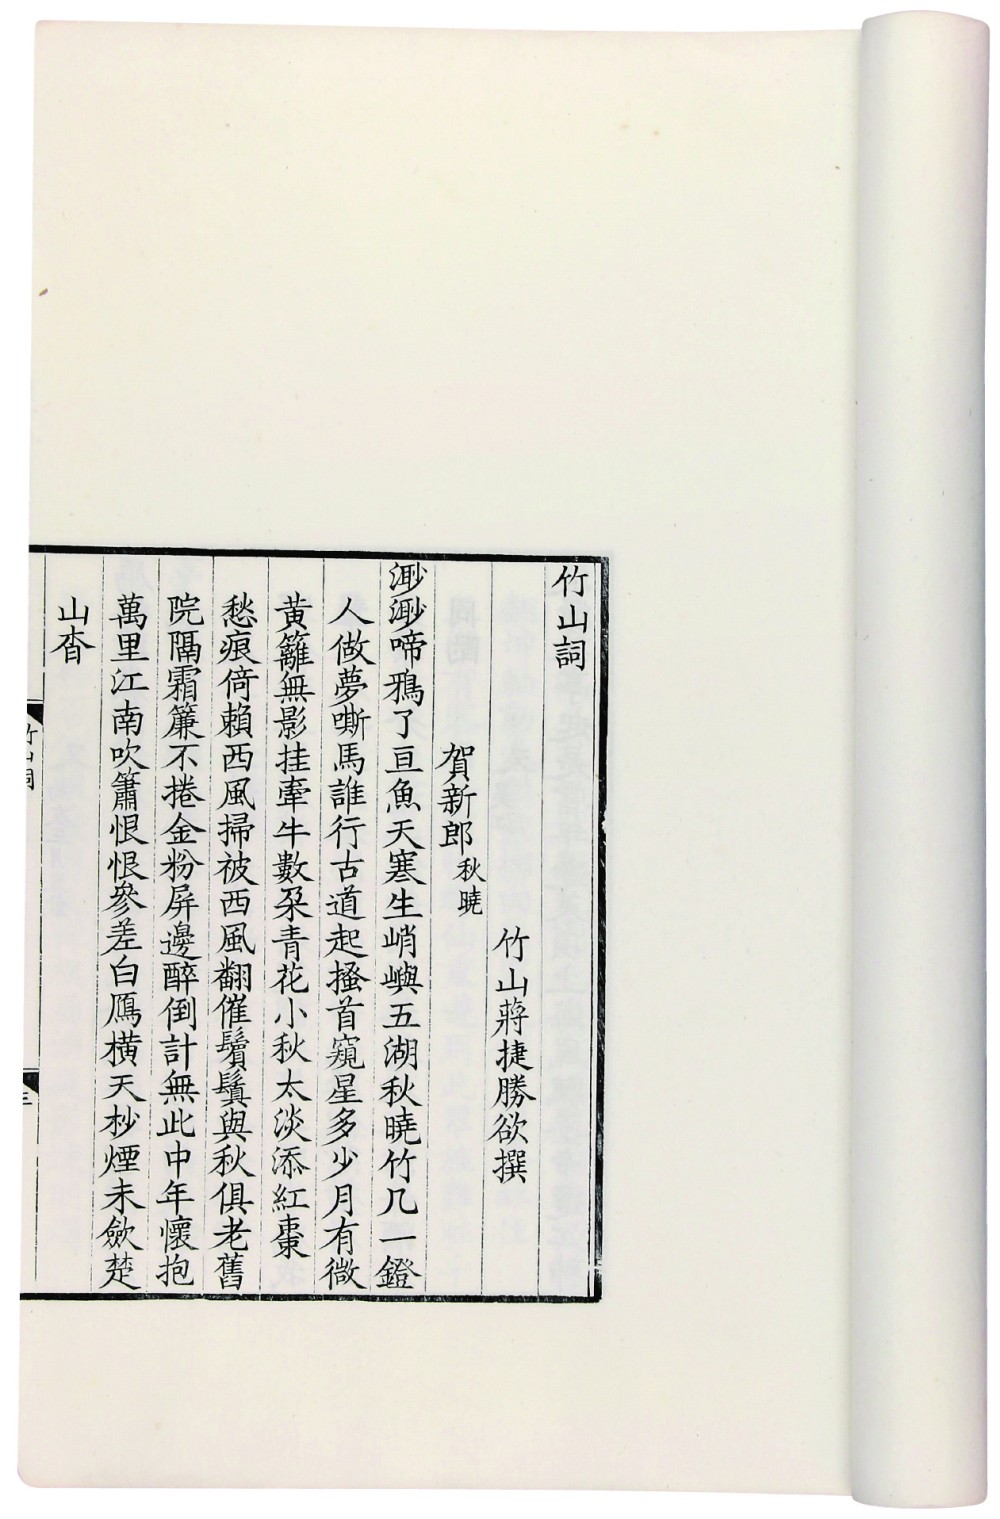 竹山詞
竹山蔣捷勝欲撰
賀新郎秋曉
渺渺啼鴉了亘魚天寒生峭嶼五湖秋曉竹几一鐙
人做夢嘶馬誰行古道起搔首窺星多少月有微
黄籬無影挂牽牛數朶青花小秋太淡添紅棗
愁痕倚賴西風掃被西風翻催鬢鬒與秋俱老舊
院隔霜簾不捲金粉屏邊醉倒計無此中年懷抱
萬里江南吹簫恨恨參差白鴈橫天杪煙未斂楚
山杳
竹山詞